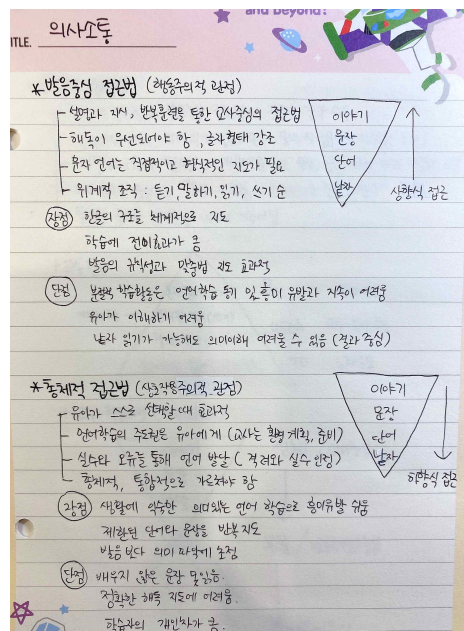 and beyond!
TITLE. 의사소통
* 발음중심 접근법 (행동주의적 관점)
설명과 지시, 반복훈련을 통한 교사중심의 접근법
해독이 우선되어야 함, 글자형태 강조
문자 언어는 직접적이고 형식적인 지도가 필요
위계적 조직 : 듣기, 말하기, 읽기, 쓰기 순
이야기
문장
단어
낱자
상향식 접근
장점 한글의 구조를 체계적으로 지도
학습에 전이효과가 큼
발음의 규칙성과 맞춤법 지도 효과적
단점 분절적 학습활동은 언어학습 동기 및 흥미 유발과 지속이 어려움
유아가 이해하기 어려움
낱자 읽기가 가능해도 의미이해 어려울 수 있음 (결과 중심)
* 총체적 접근법 (상호작용주의적 관점)
유아가 스스로 선택할 때 효과적
언어학습의 주도권은 유아에게 (교사는 환경 계획, 준비)
실수와 오류를 통해 언어 발달 (격려와 실수 인정)
총체적, 통합적으로 가르쳐야 함
이야기
문장
단어
낱자
하향식 접근
장점 생활에 익숙한 의미있는 언어 학습으로 흥미유발 쉬움
제한된 단어와 문장을 반복 지도
발음보다 의미 파악에 초점
단점 배우지 않은 문장 못읽음.
정확한 해독 지도에 어려움.
학습자의 개인차가 큼.